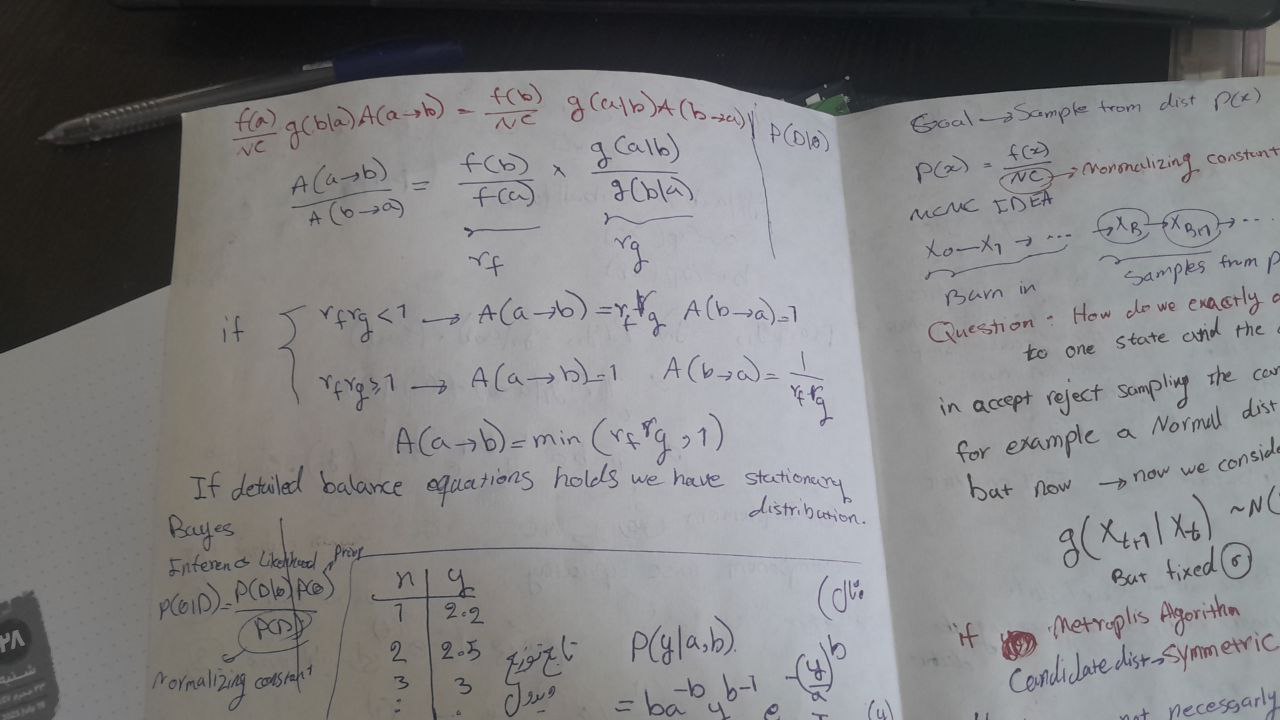 f(a)/NC g(b|a)A(a→b) = f(b)/NC g(a|b)A(b→a)
P(D|θ)
A(a→b)/A(b→a) = f(b)/f(a) × g(a|b)/g(b|a)
rf rg
if { rf rg < 1 → A(a→b) = rf rg A(b→a)=1
rf rg ≥ 1 → A(a→b)=1 A(b→a) = 1/rf rg
A(a→b) = min (rf rg, 1)
If detailed balance equations holds we have stationary
distribution.
Bayes
Likelihood Prior
P(θ|D) = P(D|θ)P(θ)/P(D)
Normalizing constant
n | y
1 | 2.2
2 | 2.5
3 | 3
: .
(مثال
تابع توزیع
ویبول
P(y|a,b).
= ba^-b y^b-1 e^-(y/a)^b
Goal → Sample from dist P(x)
P(x) = f(x)/NC →
constant
MCMC IDEA
x0 — x1 → ... → xB → xB+1 → ...
Burn in
Samples from P
Question: How do we exactly
to one state and the
in accept reject sampling the
for example a Normal dist
but now → now we
g(xt+1|xt) ~N(
But fixed σ
if Metroplis Algorithm
Candidate dist→Symmetric
not necessarly